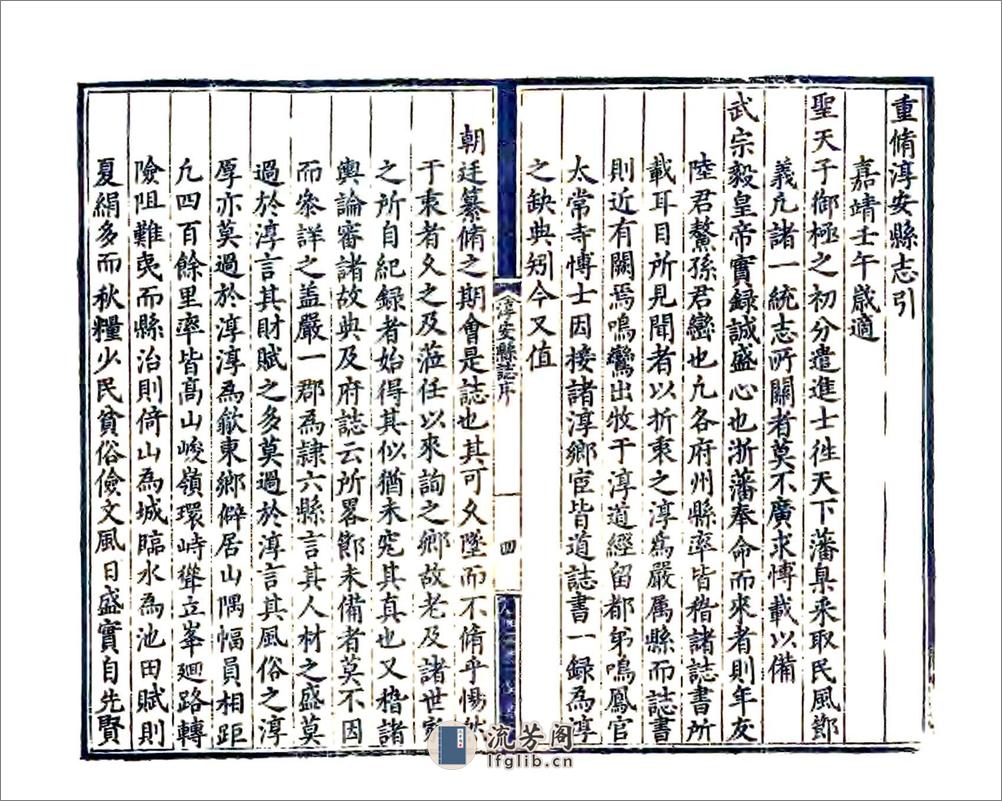 重脩淳安縣志引
嘉靖壬午歲適
聖天子御極之初分遣進士徃天下藩臬采取民風鄧
義凢諸一統志所關者莫不廣求愽載以備
武宗毅皇帝實録誠盛心也浙藩奉命而來者則年友
陸君鰲孫君巒也凢各府州縣率皆稽諸誌書所
載耳目所見聞者以折衷之淳為嚴属縣而誌書
則近有關焉鳴鸞出牧于淳道經留都弟鳴鳳官
太常寺愽士因接諸淳鄉宦皆道誌書一録為淳
之缺典矧今又值
淳安縣誌序
四
朝廷纂脩之期會是誌也其可久墜而不脩乎惕然
于衷者久之及蒞任以來詢之鄉故老及諸世家
之所自紀録者始得其似猶未究其真也又稽諸
輿論審諸故典及府誌云所畧節未備者莫不因
而叅詳之盖嚴一郡為隷六縣言其人材之盛莫
過於淳言其財賦之多莫過於淳言其風俗之淳
厚亦莫過於淳淳為歙東鄉僻居山隅幅員相距
凢四百餘里率皆高山峻嶺環峙聳立峯廻路轉
險阻難夷而縣治則倚山為城臨水為池田賦則
夏絹多而秋糧少民貧俗儉文風日盛實自先賢
流芳阁
lfglib.cn